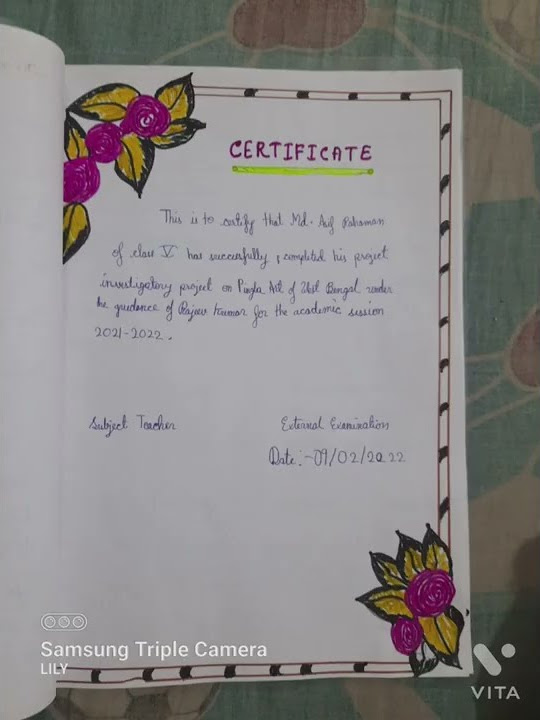 CERTIFICATE
This is to certify that Md. Asif Rahaman
of class V has successfully completed his project
investigatory project on Pingla Art of West Bengal under
the guidance of Rajeev Kumar for the academic session
2021-2022.
Subject Teacher
External Examination
Date:-09/02/2022
Samsung Triple Camera
LILY
VITA